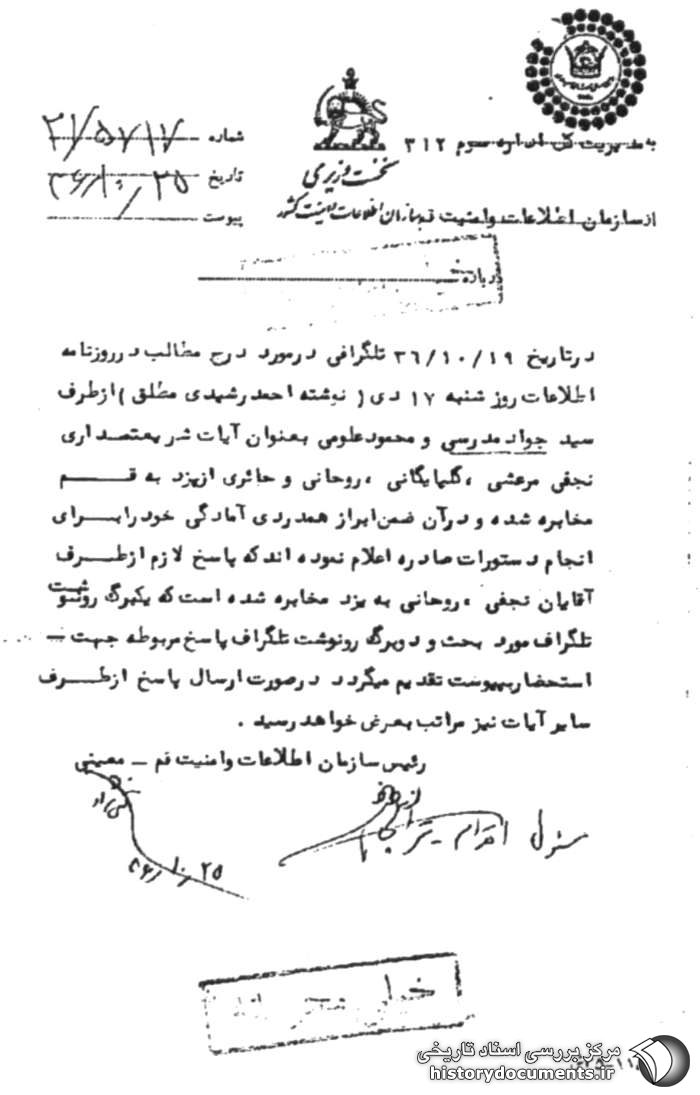 شماره ۲۱/۵۷۱۷
تاریخ ۳۶/۱۰/۲۵
پیوست
نخست وزیری
سازمان اطلاعات و امنیت کشور
به مدیریت کل اداره سوم ۳۱۲
از سازمان اطلاعات و امنیت قم
درباره
در تاریخ ۳۶/۱۰/۱۹ تلگرافی در مورد درج مطالب در روزنامه
اطلاعات روز شنبه ۱۷ دی ( نوشته احمد رشیدی مطلق ) از طرف
سید جواد مدرسی و محمود علومی بعنوان آیات شریعتمداری
نجفی مرعشی ، گلپایگانی ، روحانی و حائری از یزد به قم
مخابره شده و در آن ضمن ابراز همدردی آمادگی خود را برای
انجام دستورات صادره اعلام نموده اند که پاسخ لازم از طرف
آقایان نجفی ، روحانی به یزد مخابره شده است که یکبرگ رونوشت
تلگراف مورد بحث و دوبرگ رونوشت تلگراف پاسخ مربوطه جهت
استحضار بپیوست تقدیم میگردد در صورت ارسال پاسخ از طرف
سایر آیات نیز مراتب بعرض خواهد رسید .
رئیس سازمان اطلاعات و امنیت قم – معینی
از طرف
۳۶/۱۰/۲۵
خیلی محرمانه
مرکز بررسی اسناد تاریخی
historydocuments.ir